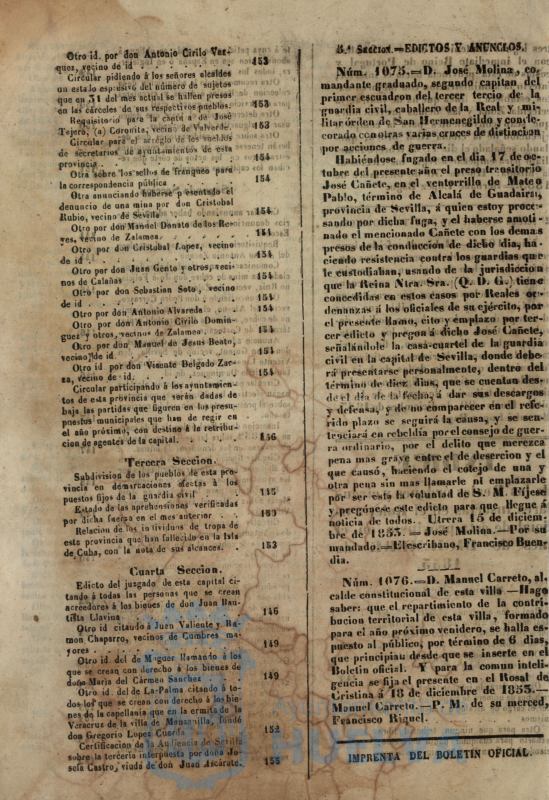 Otro id. por don Antonio Cirilo Vaz-
quez, vecino de id . . . . . . 153
Circular pidiendo á los señores alcaldes
un estado espresivo del número de sugetos
que en 31 del mes actual se hallen presos
en las cárceles de sus respectivos pueblos. 153
Requisitorio para la captura de José
Tejero, (a) Coronita, vecino de Valverde. 153
Circular para el arreglo de los sueldos
de secretarios de ayuntamientos de esta
provincia . . . . . . . . 154
Otra sobre los sellos de franqueo para
la correspondencia pública . . . . 154
Otra anunciando haberse presentado el
denuncio de una mina por don Cristobal
Rubio, vecino de Sevilla . . . . 154
Otro por don Manuel Donato de los Re-
yes, vecino de Zalamea . . . . 154
Otro por don Cristobal Lopez, vecino
de id . . . . . . . . . 154
Otro por don Juan Gento y otros, veci-
nos de Calañas . . . . . . 154
Otro por don Sebastian Soto, vecino
de id . . . . . . . . . 154
Otro por don Antonio Alvareda . . 154
Otro por don Antonio Cirilo Domin-
guez y otros, vecinos de Zalamea . . 154
Otro por don Manuel de Jesus Beato,
vecino de id. . . . . . . . 154
Otro id por don Vicente Delgado Zar-
za, vecino de id. . . . . . . 154
Circular participando á los ayuntamien-
tos de esta provincia que serán dadas de
baja las partidas que figuren en los presu-
puestos municipales que han de regir en
el año próximo, con destino á le retribu-
cion de agentes de la capital. . . . 156
Tercera Seccion.
Subdivision de los pueblos de esta pro-
vincia en demarcaciones afectas á los
puestos fijos de la guardia civil . . . 145
Estado de las aprehensiones verificadas
por dicha fuerza en el mes anterior . . 150
Relacion de los individuos de tropa de
este provincia que han fallecido en la Isla
de Cuba, con la nota de sus alcances. . 153
Cuarta Seccion.
Edicto del juzgado de esta capital ci-
tando á todas las personas que se crean
acreedores á los bienes de don Juan Bau-
tista Clavina . . . . . . . 146
Otro id citando á Juan Valiente y Ra-
mon Chaparro, vecinos de Cumbres ma-
yores . . . . . . . . . 149
Otro id. del de Moguer llamando á los
que se crean con derecho á los bienes de
doña Maria del Cármen Sanchez . . . 149
Otro id. del de La-Palma citando á to-
dos los que se crean con derecho á los bie-
nes de la capellania que en la ermita de la
Veracruz de la villa de Manzanilla, fundó
don Gregorio Lopez Cuerda . . . . 152
Certificacion de la Audiencia de Sevilla
sobre la tercería interpuesta por doña Jo-
sefa Castro, viuda de don Juan Ascárate. 155
5.ª Seccion.=EDICTOS Y ANUNCIOS.
Núm. 1075.=D. José Molina, co-
mandante graduado, segundo capitan del
primer escuadron del tercer tercio de la
guardia civil, caballero de la Real y mi-
litar órden de San Hermenegildo y conde-
corado con otras varias cruces de distincion
por acciones de guerra.
Habiéndose fugado en el dia 17 de oc-
tubre del presente año el preso transitorio
José Cañete, en el ventorrillo de Mateo
Pablo, término de Alcalá de Guadaira,
provincia de Sevilla, á quien estoy proce-
sando por dicha fuga, y el haberse amoti-
nado el mencionado Cañete con los demas
presos de la conduccion de dicho dia, ha-
ciendo resistencia contra los guardias que
le custodiaban, usando de la jurisdiccion
que la Reina Ntra. Sra. (Q. D. G.) tiene
concedidas en estos casos por Reales or-
denanzas á los oficiales de su ejército, por
el presente llamo, cito y emplazo por ter-
cer edicto y pregon á dicho José Cañete,
señalándole la casa-cuartel de la guardia
civil en la capital de Sevilla, donde debe-
rá presentarse personalmente, dentro del
término de diez dias, que se cuentan des-
de el dia de la fecha, á dar sus descargos
y defensa, y de no comparecer en el refe-
rido plazo se seguirá la causa, y se sen-
tenciará en rebeldía por el consejo de guer-
ra ordinario, por el delito que merezca
pena mas grave entre el de desercion y el
que causó, haciendo el cotejo de una y
otra pena sin mas llamarle ni emplazarle
por ser esta la voluntad de S. M. Fíjese
y pregónese este edicto para que llegue á
noticia de todos. Utrera 15 de diciem-
bre de 1853. = José Molina.=Por su
mandado.=El escribano, Francisco Buen-
dia.
Núm. 1076.=D. Manuel Carreto, al-
calde constitucional de esta villa =Hago
saber: que el repartimiento de la contri-
bucion territorial de esta villa, formado
para el año próximo venidero, se halla es-
puesto al público, por término de 6 dias,
que principian desde que se inserte en el
Boletin oficial. Y para la comun inteli-
gencia se fija el presente en el Rosal de
Cristina á 18 de diciembre de 1853.=
Manuel Carreto.=P. M. de su merced,
Francisco Riquel.
IMPRENTA DEL BOLETIN OFICIAL.